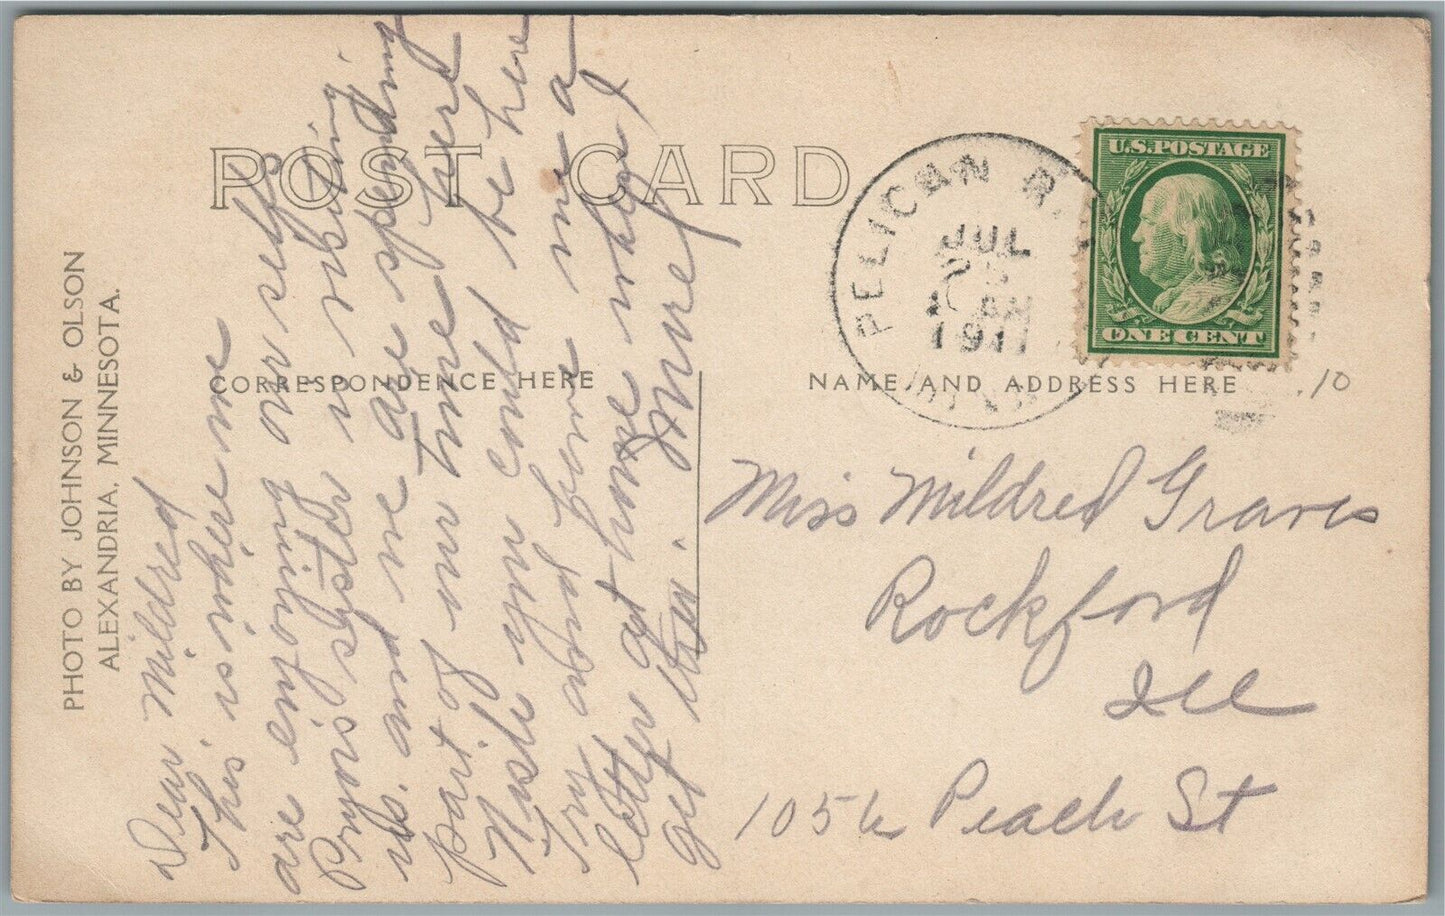 POST CARD
PHOTO BY JOHNSON & OLSON
ALEXANDRIA, MINNESOTA.
CORRESPONDENCE HERE
NAME AND ADDRESS HERE
PELICAN R
JUL
AM
1911
U.S. POSTAGE
ONE CENT
.10
Dear Mildred
This is where we
are enjoying our selfs
Pryor's sister is visiting
us. and we are spending
part of our time here
Wish you could be here
Try and have me a
letter at home when I
get there. Love
Miss Mildred Graves
Rockford
Ill
1056 Peach St